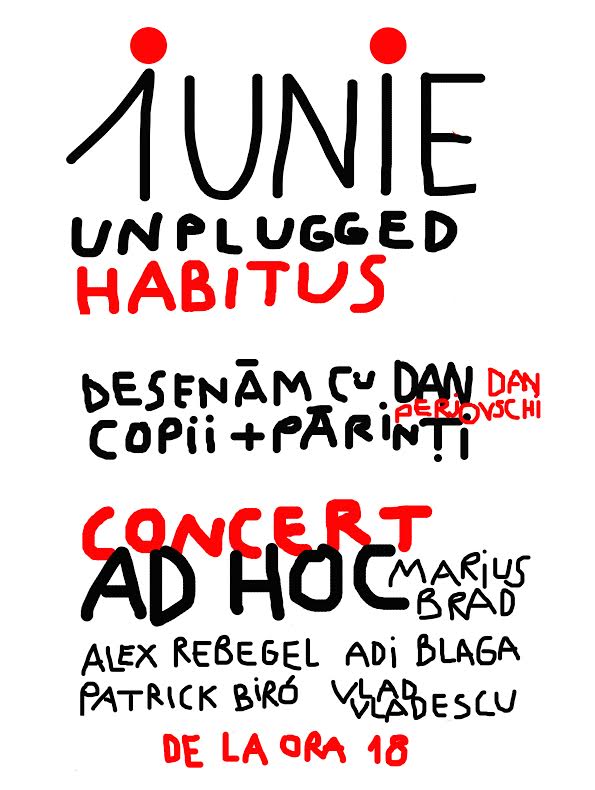 1 IUNIE
UNPLUGGED
HABITUS
DESENĂM CU DAN DAN PERJOVSCHI
COPII + PĂRINȚI
CONCERT
AD HOC MARIUS BRAD
ALEX REBEGEL ADI BLAGA
PATRICK BIRÓ VLAD VLĂDESCU
DE LA ORA 18